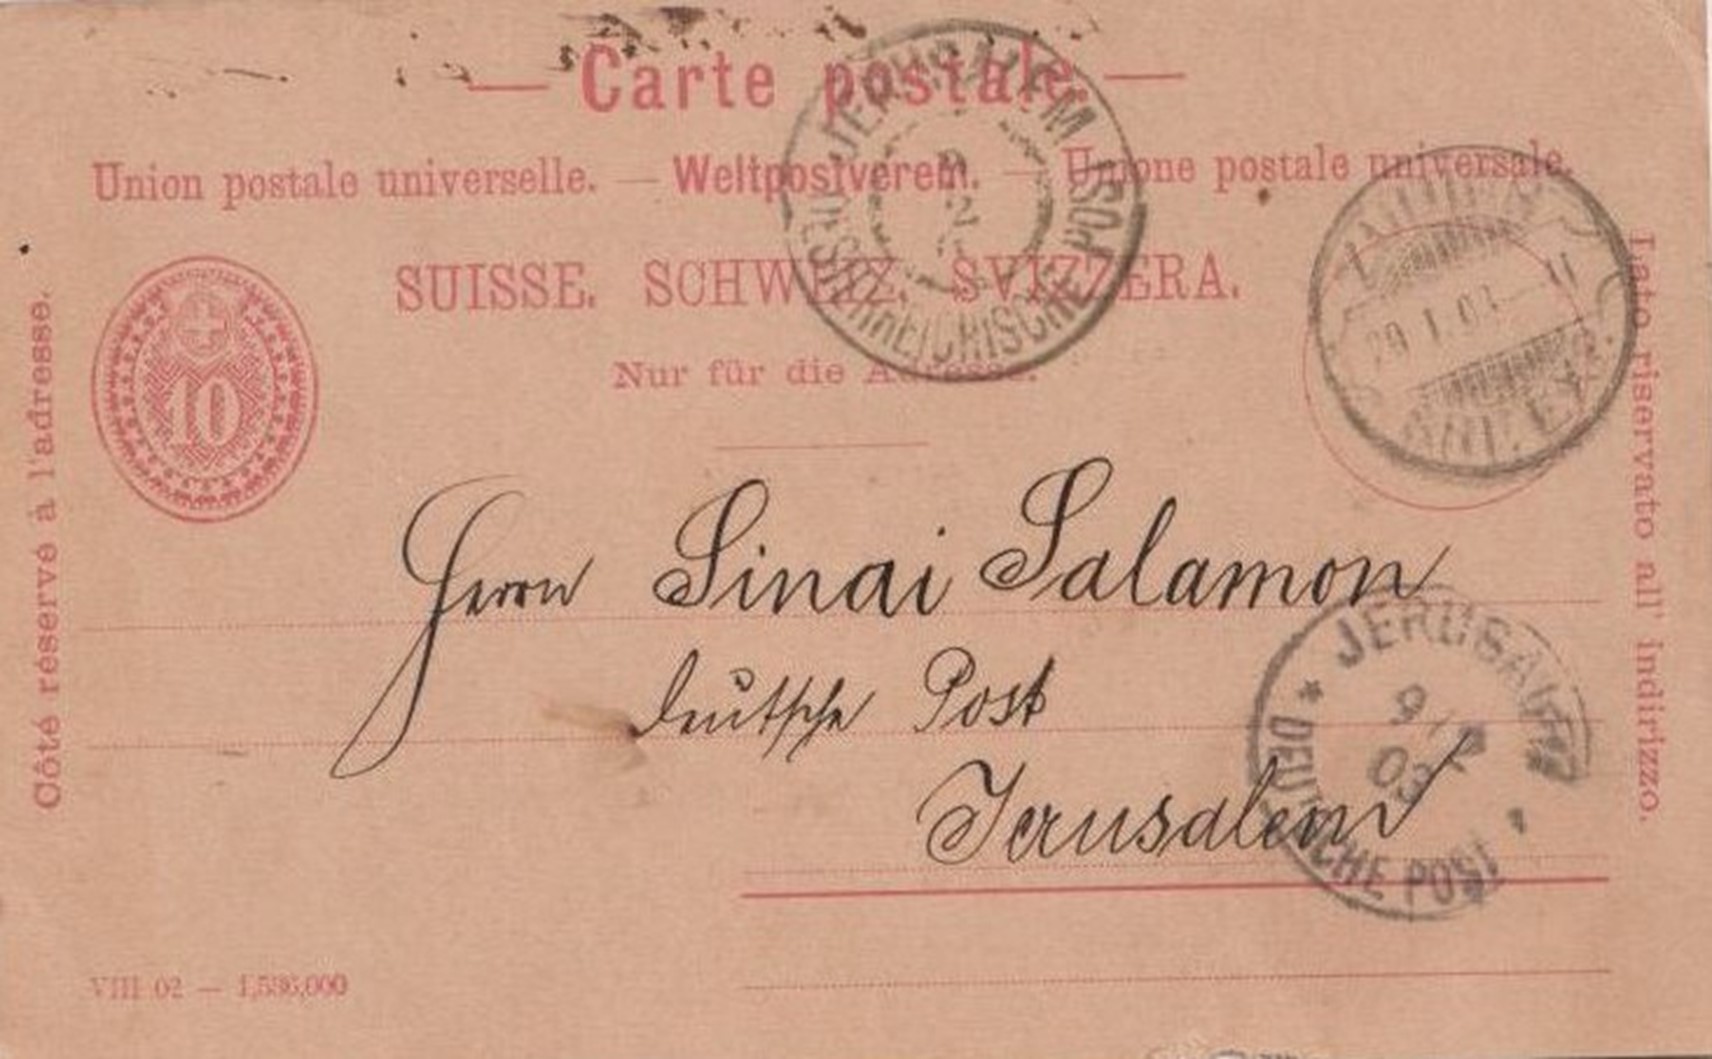 — Carte postale. —
Union postale universelle. — Weltpostverein. — Unione postale universale.
SUISSE. SCHWEIZ. SVIZZERA.
Nur für die Adresse.
Côté réservé à l'adresse.
Lato riservato all' indirizzo.
10
JERUSALEM
9
2
OESTERREICHISCHE POST
29.I.03 – 11
BRF. EXP.
Herrn Sinai Salamon
deutsche Post
Jerusalem
* JERUSALEM *
9/2
03
DEUTSCHE POST
VIII 02 — 1,586,000